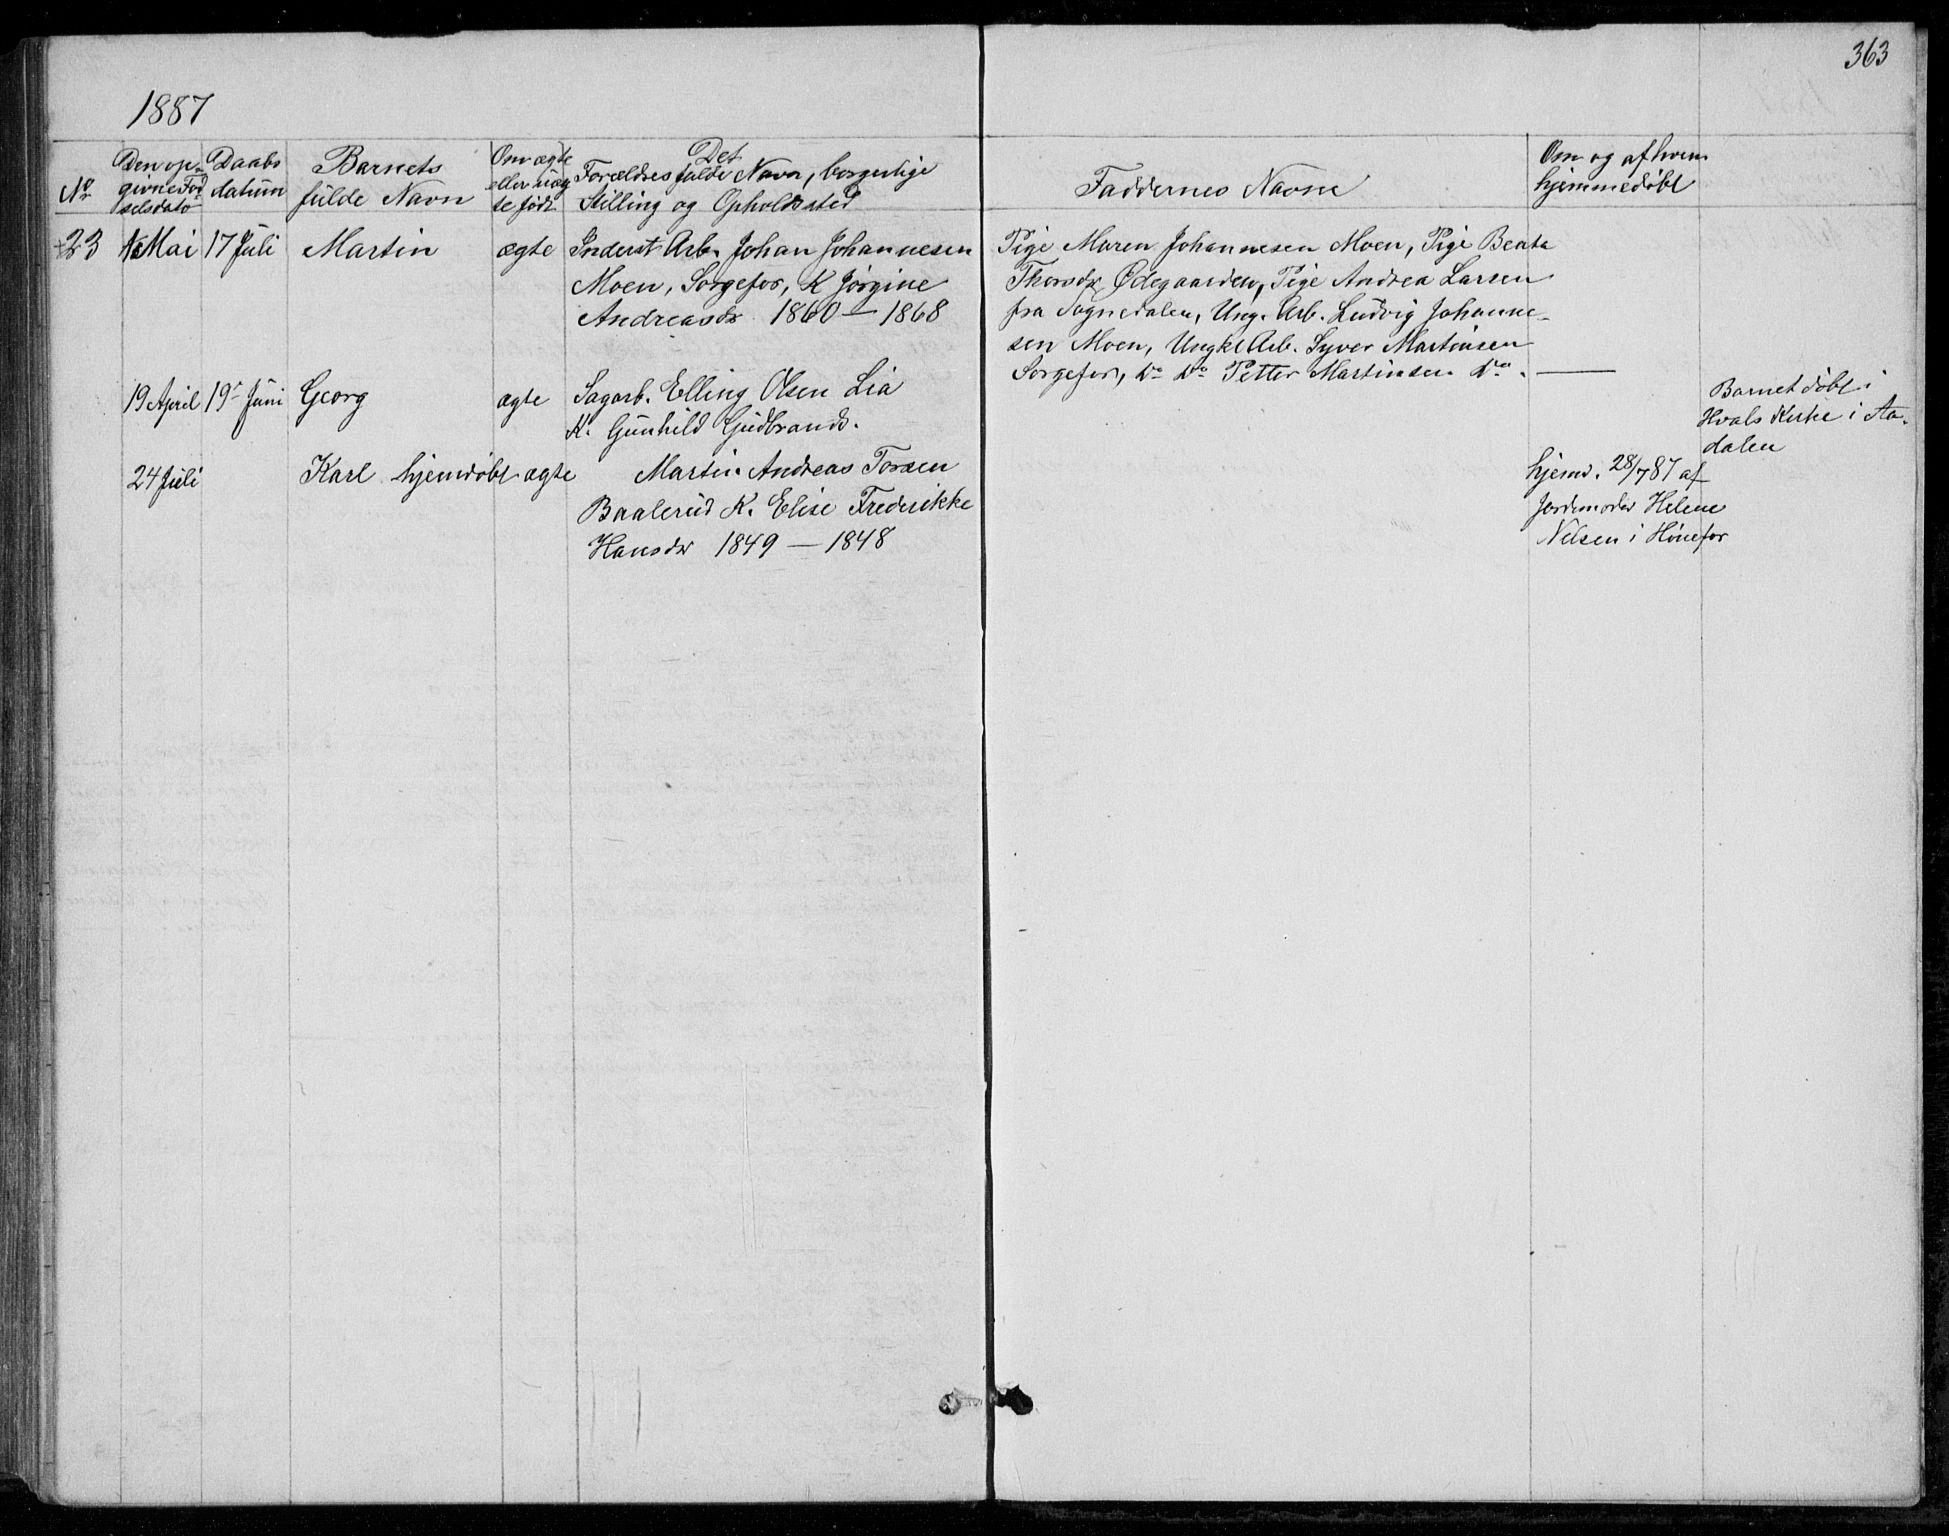 363
1887
No
Den op-
givne Fød
selsdato
Daabs
datum
Barnets
fulde Navn
Om ægte
eller uæg
te født
Det
Forældres fulde Navn, borgerlige
Stilling og Opholdssted
Faddernes Navne
Om og af hvem
hjemmedøbt
23
Mai
17 Juli
Martin
ægte
Inderst Arb. Johan Johannesen
Moen, Sorgefos, K Jørgine
Andreasdr 1860 — 1868
Pige Maren Johannesen Moen, Pige Beata
Thorsdr Ødegaarden, Pige Andrea Larsen
fra Sognedalen, Ung. Arb. Ludvig Johanne-
sen Moen, Ungkl Arb. Syver Martinsen
Sorgefos, do do Petter Martinsen do. —
19 April
19 Juni
Georg
ægte
Sagarb. Elling Olsen Lia
K. Gunhild Gudbrands.
Barnet døbt i
Hvals Kirke i Aa-
dalen
24 Juli
Karl hjemdøbt
ægte
Martin Andreas Torsen
Baalerud K. Elise Frederikke
Hansdr 1849 — 1848
hjemd. 28/7 87 af
Jordemoder Helene
Nelsen i Hønefos